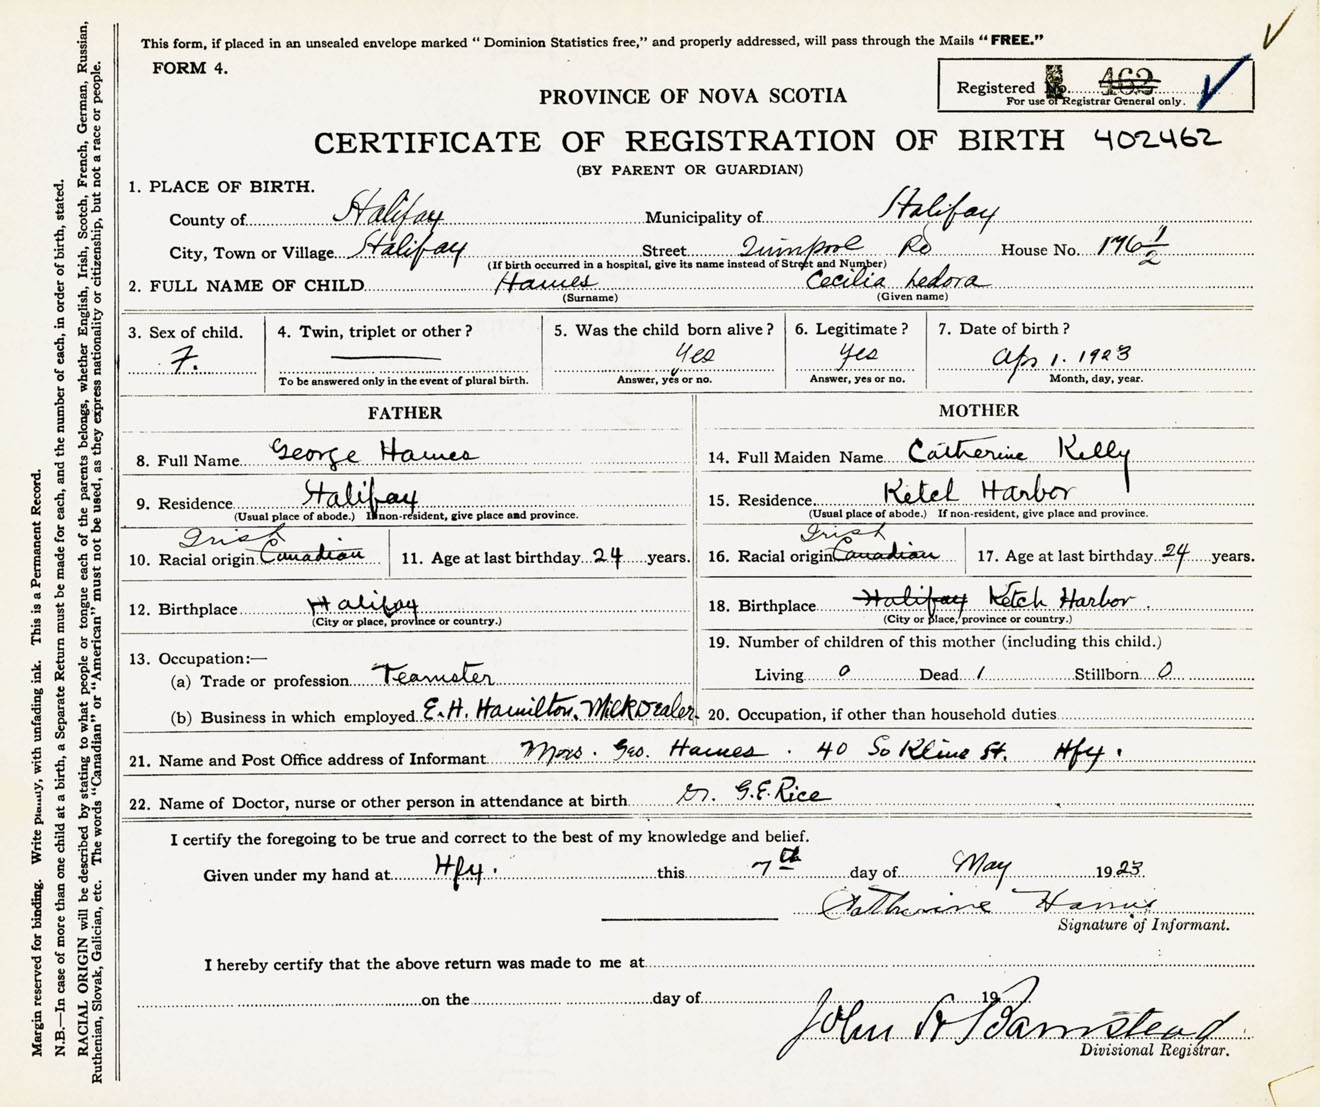 This form, if placed in an unsealed envelope marked " Dominion Statistics free," and properly addressed, will pass through the Mails "FREE."
FORM 4.
Registered No. 462
For use of Registrar General only.
PROVINCE OF NOVA SCOTIA
CERTIFICATE OF REGISTRATION OF BIRTH 402462
(BY PARENT OR GUARDIAN)
1. PLACE OF BIRTH.
County of Halifax Municipality of Halifax
City, Town or Village Halifax Street Quinpool Rd House No. 196 1/2
(If birth occurred in a hospital, give its name instead of Street and Number)
2. FULL NAME OF CHILD Hawes Cecilia Ledora
(Surname) (Given name)
3. Sex of child. 4. Twin, triplet or other? 5. Was the child born alive? 6. Legitimate? 7. Date of birth?
F. Yes Yes Apr 1. 1923
To be answered only in the event of plural birth. Answer, yes or no. Answer, yes or no. Month, day, year.
FATHER MOTHER
8. Full Name George Hawes 14. Full Maiden Name Catherine Kelly
9. Residence Halifax 15. Residence Ketch Harbor
(Usual place of abode.) If non-resident, give place and province. (Usual place of abode.) If non-resident, give place and province.
Irish Irish
10. Racial origin Canadian 11. Age at last birthday 24 years. 16. Racial origin Canadian 17. Age at last birthday 24 years.
12. Birthplace Halifax 18. Birthplace Halifax Ketch Harbor.
(City or place, province or country.) (City or place, province or country.)
13. Occupation:— 19. Number of children of this mother (including this child.)
(a) Trade or profession Teamster Living 0 Dead 1 Stillborn 0
(b) Business in which employed E.H. Hamilton, Milk Dealer. 20. Occupation, if other than household duties
21. Name and Post Office address of Informant Mrs. Geo. Hawes . 40 So Kline St. Hfx.
22. Name of Doctor, nurse or other person in attendance at birth Dr. G.E. Rice
I certify the foregoing to be true and correct to the best of my knowledge and belief.
Given under my hand at Hfx. this 7th day of May 1923
Catherine Hawes
Signature of Informant.
I hereby certify that the above return was made to me at
on the day of 19
John A Barnstead
Divisional Registrar.
Margin reserved for binding. Write plainly, with unfading ink. This is a Permanent Record.
N.B.—In case of more than one child at a birth, a Separate Return must be made for each, and the number of each, in order of birth, stated.
RACIAL ORIGIN will be described by stating to what people or tongue each of the parents belongs, whether English, Irish, Scotch, French, German, Russian,
Ruthenian, Slovak, Galician, etc. The words "Canadian" or "American" must not be used, as they express nationality or citizenship, but not a race or people.